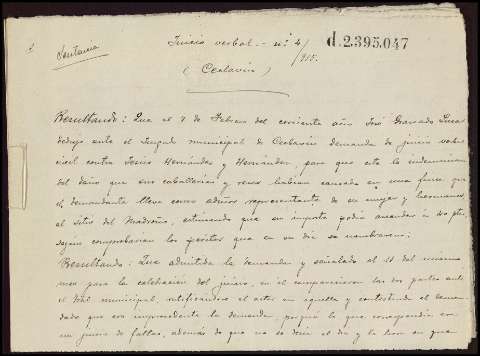 Sentencia
Juicio verbal - nº 4/
915.-
d.2.395.047
(Ceclavín)
Resultando: Que el 7 de Febrero del corriente año José Granado
dedujo ante el Juzgado municipal de Ceclavín demanda de juicio verbal
civil contra Jesús Hernández y Hernández, para que éste le indemnizara
del daño que sus caballerías y reses habían causado en una finca que
el demandante lleva como administrador representante de su mujer y hermanos,
al sitio del Madroño, estimando que su importe podía ascender á 100 ptas,
según comprobarían los peritos que en su día se nombraren:
Resultando: Que admitida la demanda y señalado el 11 del mismo
mes para la celebración del juicio, en él comparecieron las dos partes ante
el Tbnal municipal, ratificándose el actor en aquella y contestando el deman-
dado que era improcedente la demanda, porque la que correspondía era
un juicio de faltas, además de que no se decía el día y la hora en que